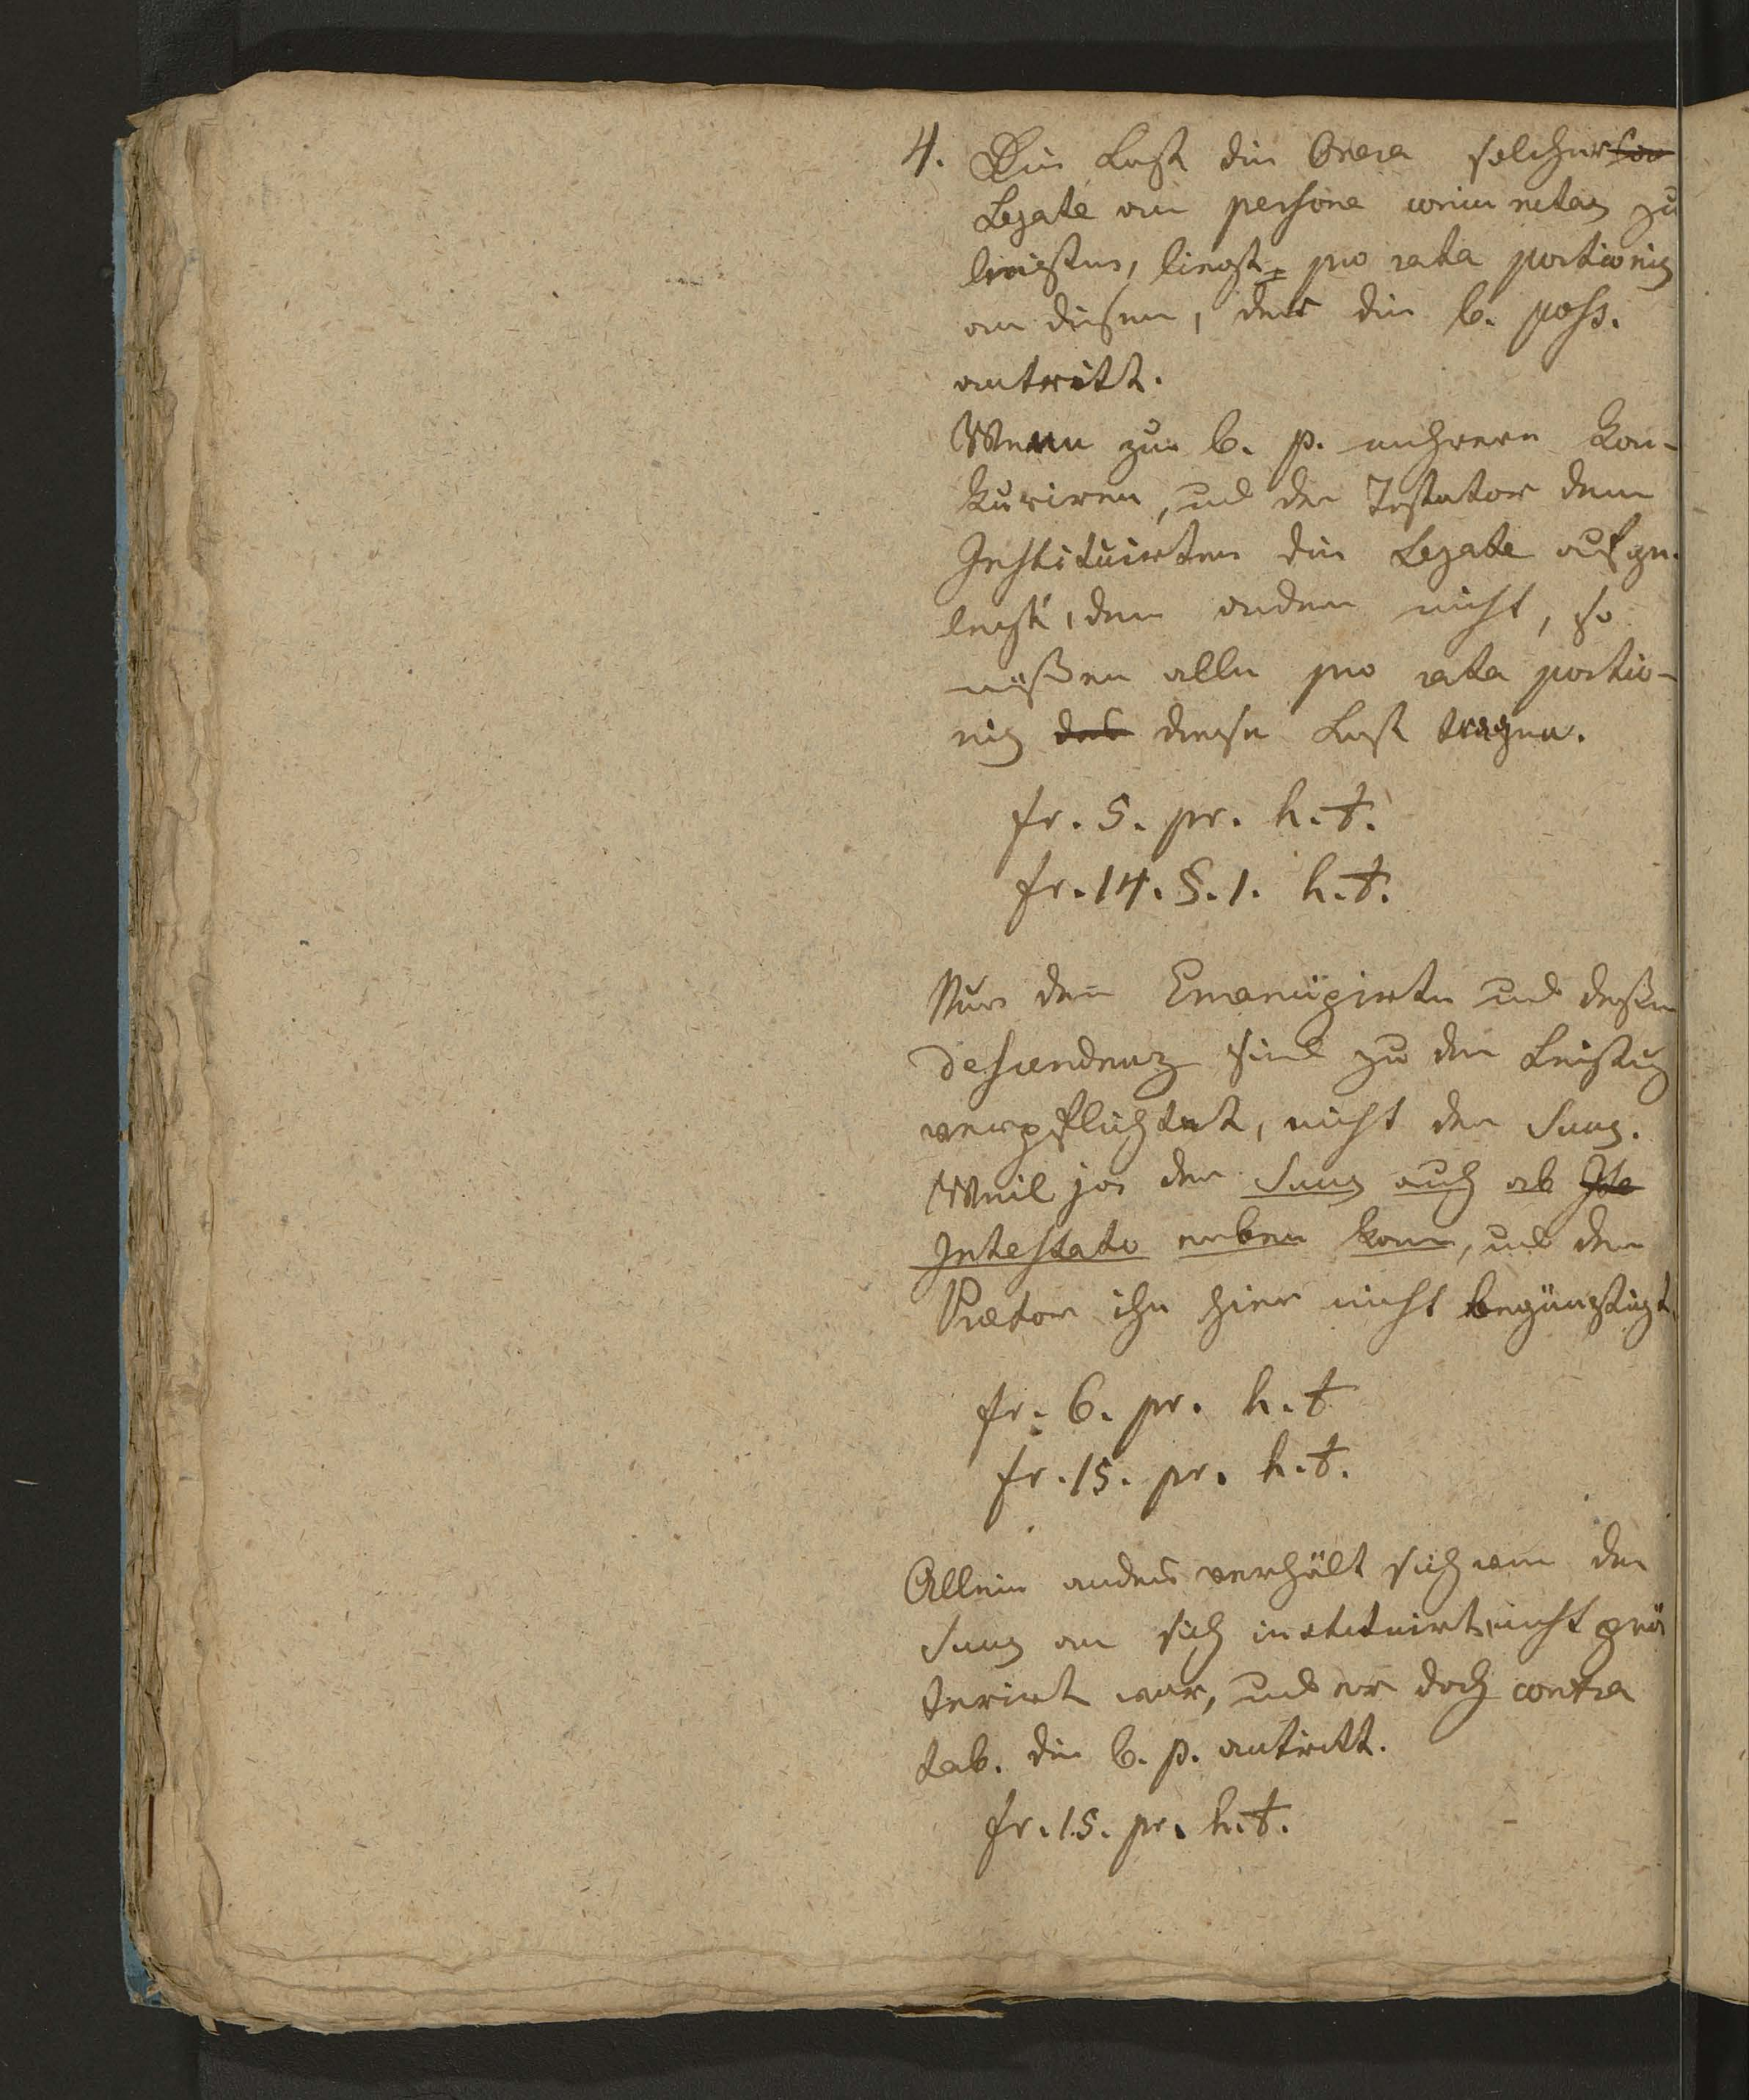 4. Die Last die Onera solcher
Legate an persone coniunctas zu
leisten, liegt pro rata portionis
an diesem, der die b. poss.
antritt.
Wenn zur b. p. mehrere kon-
kuriren, und der Testator dem
Instituirten die Legate aufge-
legt, dem andern nicht, so
müßen alle pro rata portio-
nis das diese Last tragen.
fr. 5. pr. h. t.
fr. 14. §. 1. h. t.
Nur der Emancipirte und deßen
Descendenz sind zu der Leistung
verpflichtet, nicht der Suus.
Weil ja der Suus auch ab
Intestato erben kann, und der
Prætor ihn hier nicht begünstigt.
fr. 6. pr. h. t
fr. 15. pr. h. t.
Allein anders verhält sich wenn der
Suus an sich instituirt, nicht prä
terirt war, und er doch contra
tab. die b. p. antritt.
fr. 15. pr. h. t.